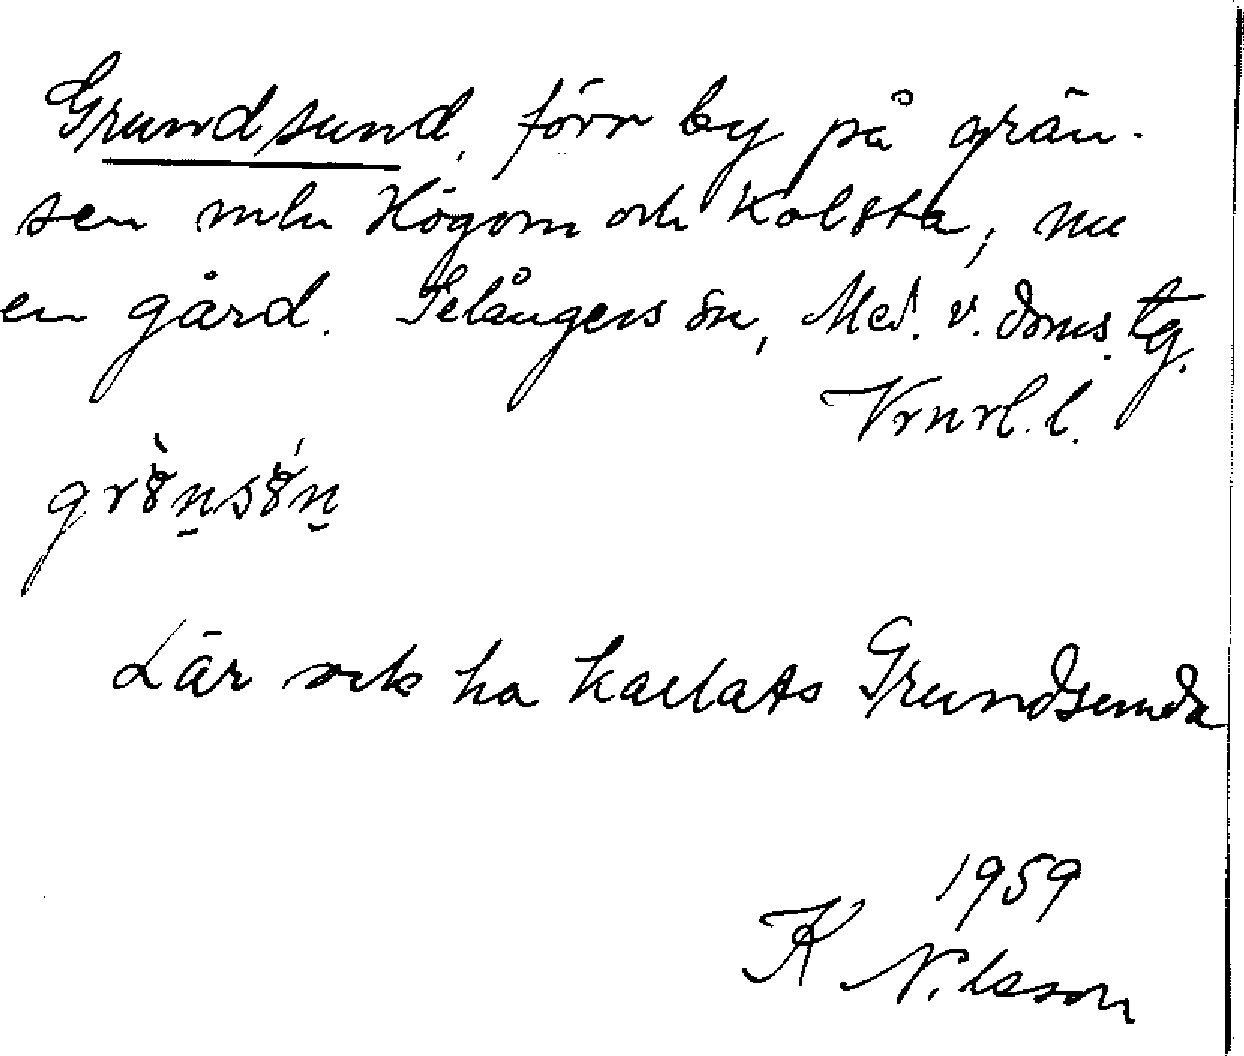 Grundsund, förr by på grän-
sen mln Högom och Kolsta, nu
en gård. Selångers sn, Med. v. doms. tg.
Vrnrl. l.
Lär ock ha kallats Grundsunda
1959
K Nilsson